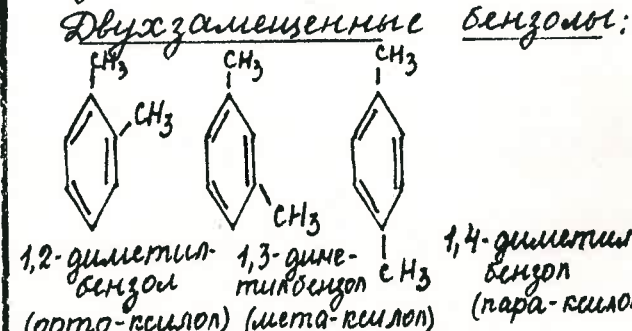 Двухзамещенные бензолы:
CH3 CH3 CH3
CH3
CH3
CH3
1,2-диметил-
бензол
(орто-ксилол)
1,3-диме-
тилбензол
(мета-ксилол)
1,4-диметил
бензол
(пара-ксилол